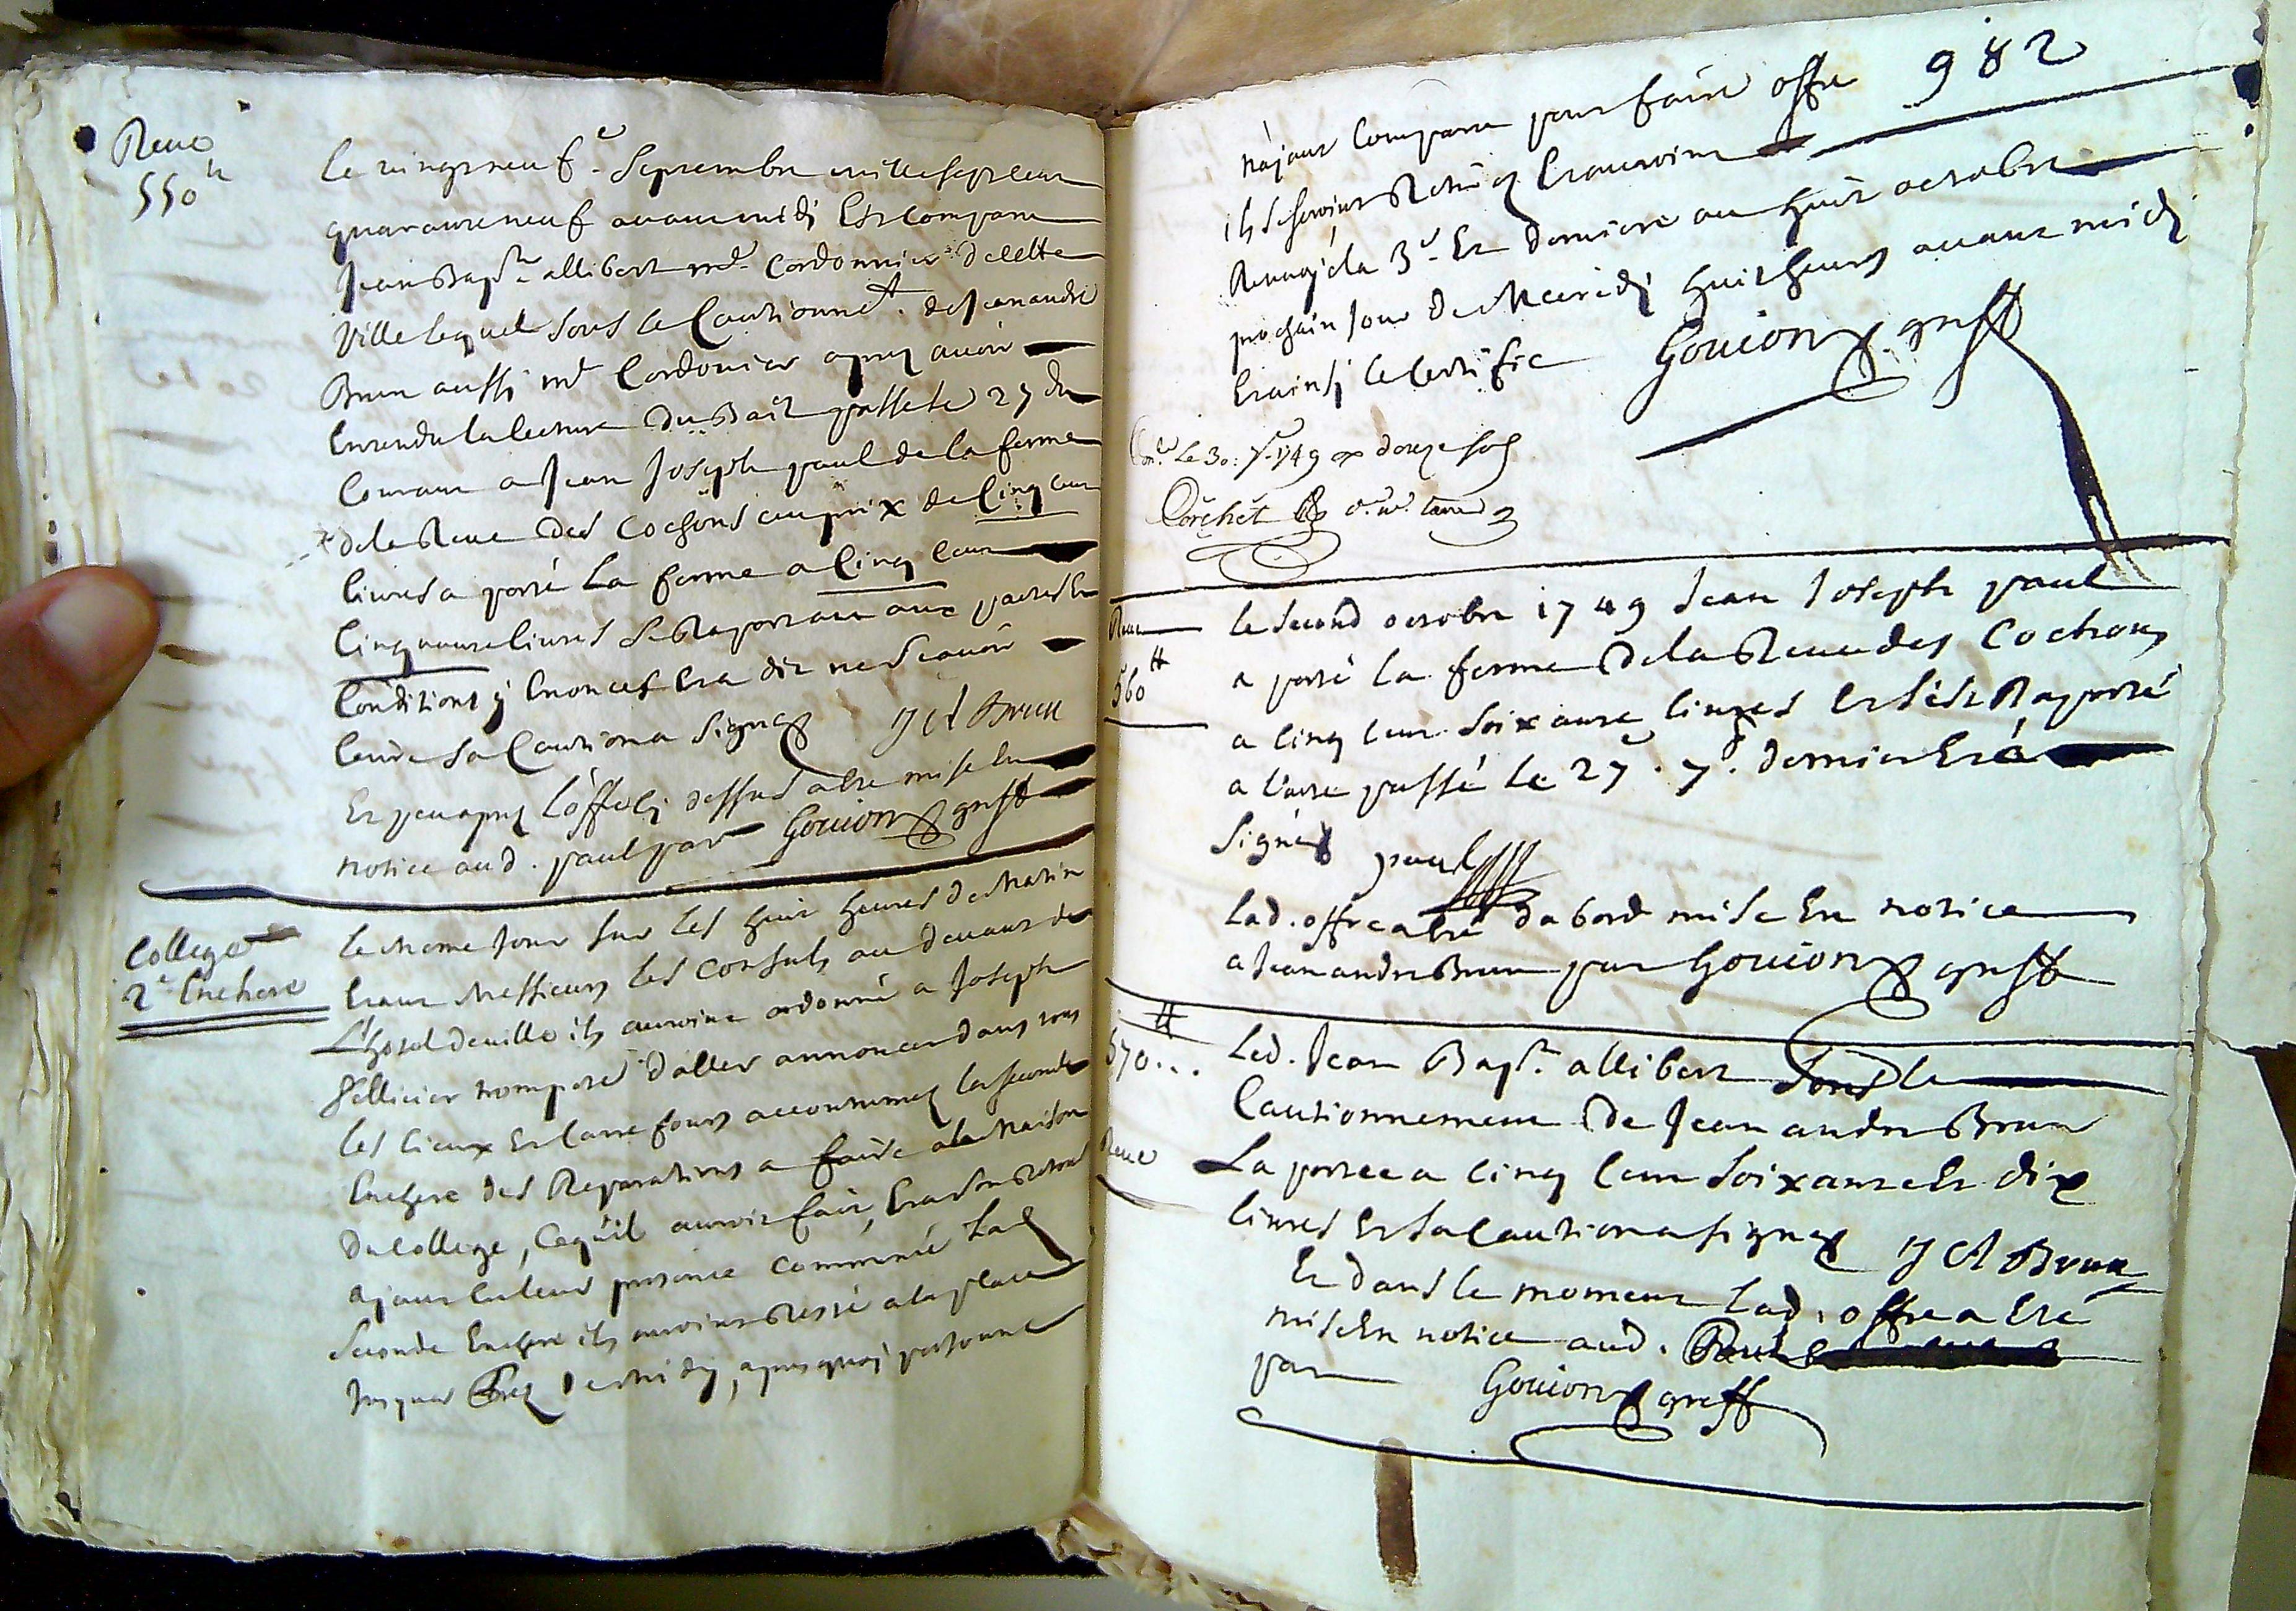 Reve
550lt
le vingt neuf.e Septembre mille sept cent
quarante neuf avant midi Est comparu
Jean Bapte allibert md. Cordonnier de cette
Ville lequel sous le Cautionnet. de Jean andré
Brun aussi md Cordonier apres avoir
Entendu la lecture du Bail passé le 27 du
Courant a Jean Joseph paul de la ferme
de la Reve des Cochons au prix de Cinq cent
livres a porté la ferme a Cinq Cent
Cinquante livres se Raportant aux pactes Et
Conditions y Enoncés Et a dit ne Scavoir
Ecrire sa Caution a signé J A Brun
Et peu apres l'offre cy dessus a été mise En
notice aud. paul par Gouion greff
College
2e Enchere
le meme Jour sur les huit heures de Matin
Etant Messieurs les Consuls au devant de
L'hotel de ville ils auroint ordonné a Joseph
Pellicier trompete d'aller annoncer dans tous
les lieux Et Carrefours accoutumez la seconde
Enchere des Reparations a faire a la Maison
du College, Ce qu'il auroit fait, Et a son Retour
ayant En leur presence Commencé lad
seconde Enchere ils auroint Resté a la place
Jusques Prez de Midy, apres quoi personne
982
n'ayant Comparu pour faire offre
ils se seroint Retirés Et auroint
Renvoyé la 3e. Et derniere au huit octobre
prochain Jour de Mercredi huit heures avant midi
Et ainsi le Certifie Gouion greff
Con.le Le 30: 7.bre 1749 douze sols
Corchet
Reve
560lt
le second octobre 1749 Jean Joseph paul
a porté la ferme de la Reve des Cochons
a Cinq Cent soixante livres Et s'est Raporté
a l'acte passé le 27e. 7e. dernier Et a
signé paul
Lad. offre a été d'abord mise En notice
a Jean andré Brun par Gouion greff
570lt...
Reve
Led. Jean Bapte. allibert sous le
Cautionnement de Jean andré Brun
La portée a Cinq Cent soixante Et dix
livres Et sa Caution a signé J A Brun
Et dans le moment Lad. offre a Eté
mise En notice aud. Paul
par Gouion greff